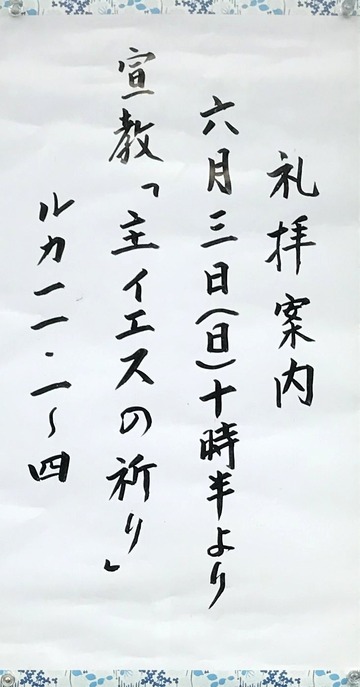 礼拝案内
六月三日(日)十時半より
宣教「主イエスの祈り」
ルカ一一・一～四